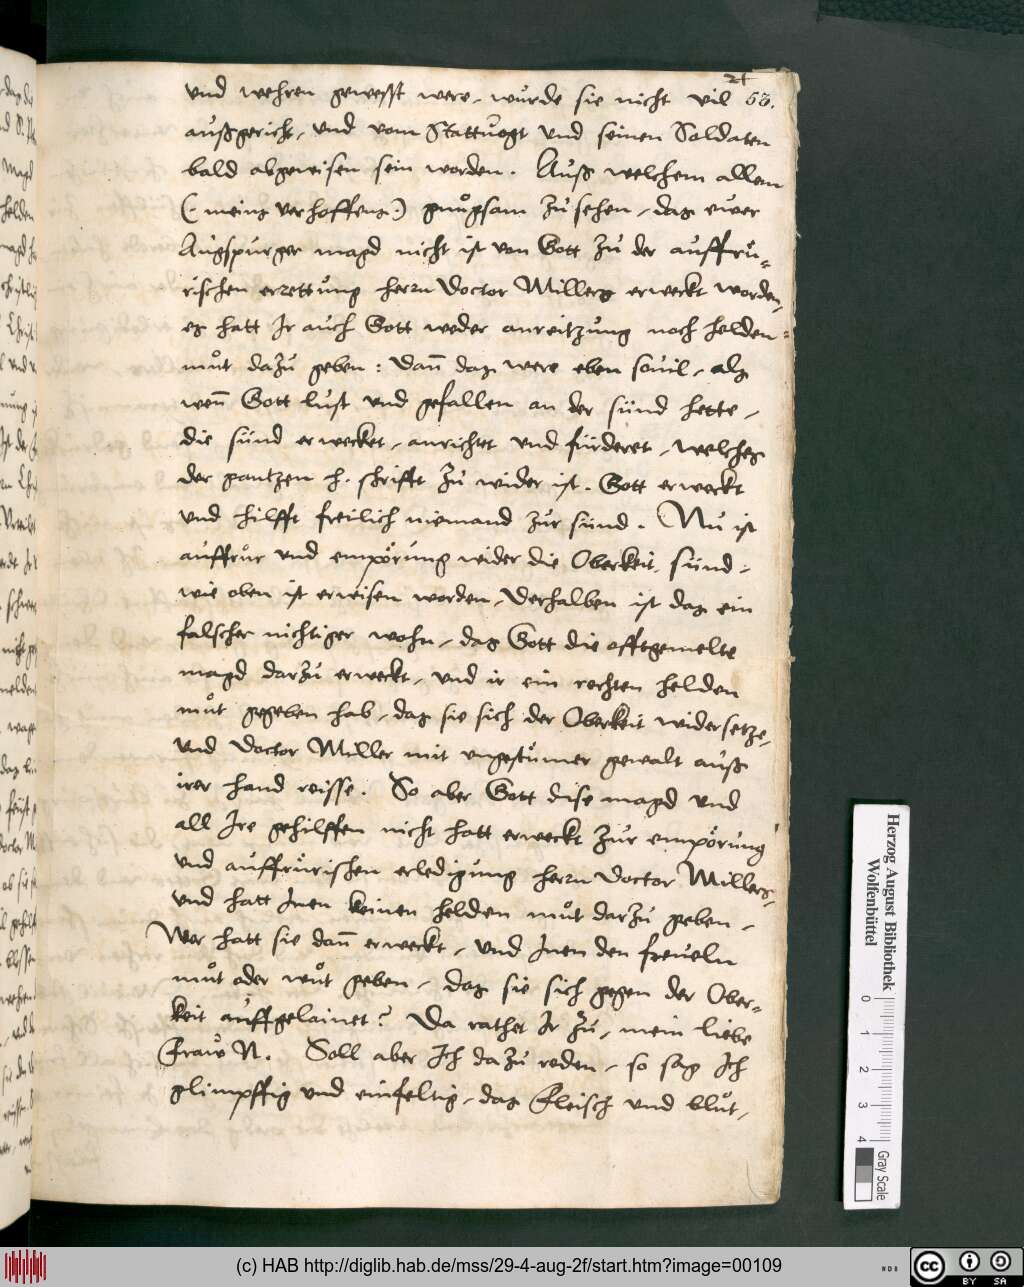 24
53.
vnd wehren gewesst were, wurde sie nicht vil
außgericht, vnd vom Stattvogt vnd seinen Soldaten
bald abgewisen sein worden. Auß welchem allem
(: meins verhoffens :) gnůgsam zů sehen, das ewer
Augspurger magd nicht ist von Gott zů der auffrů-
rischen errettung herrn Doctor Millers erweckt worden,
es hatt Ir auch Gott weder anreitzung noch helden-
můt dazů geben: Dann̄ das were eben souil, als
wen̄ Gott lust vnd gefallen an der sünd hette,
die sünd erwecket, anrichtet vnd fürderet, welches
der gantzen h. schrifft zů wider ist. Gott erweckt
vnd hilfft freilich niemand zur sünd. Nu ist
auffrůr vnd empörung wider die Oberkeit, sünd,
wie oben ist erwisen worden, Derhalben ist das ein
falscher nichtiger wohn, das Gott die offtgemelte
magd darzů erweckt, vnd ir ein rechten helden
můt gegeben hab, das sie sich der Oberkeit widersetze,
vnd Doctor Miller mit vngestümer gewalt auß
irer hand reisse. So aber Gott dise magd vnd
all Ire gehilffen nicht hatt erweckt zur empörung
vnd auffrůrischen erledigung herrn Doctor Millers,
vnd hatt Inen keinen helden můt darzů geben,
Wer hatt sie dan̄ erweckt, vnd Inen den freueln
můt oder wůt geben, das sie sich gegen der Ober-
keit auffgelainet? Da rathet Ir zů, mein liebe
Fraw N. Soll aber Ich dazů reden, so sag Ich
glimpffig vnd einfeltig, das Fleisch vnd blůt,
Herzog August Bibliothek
Wolfenbüttel
0 1 2 3 4
Gray Scale
(c) HAB http://diglib.hab.de/mss/29-4-aug-2f/start.htm?image=00109
WDB
cc BY SA